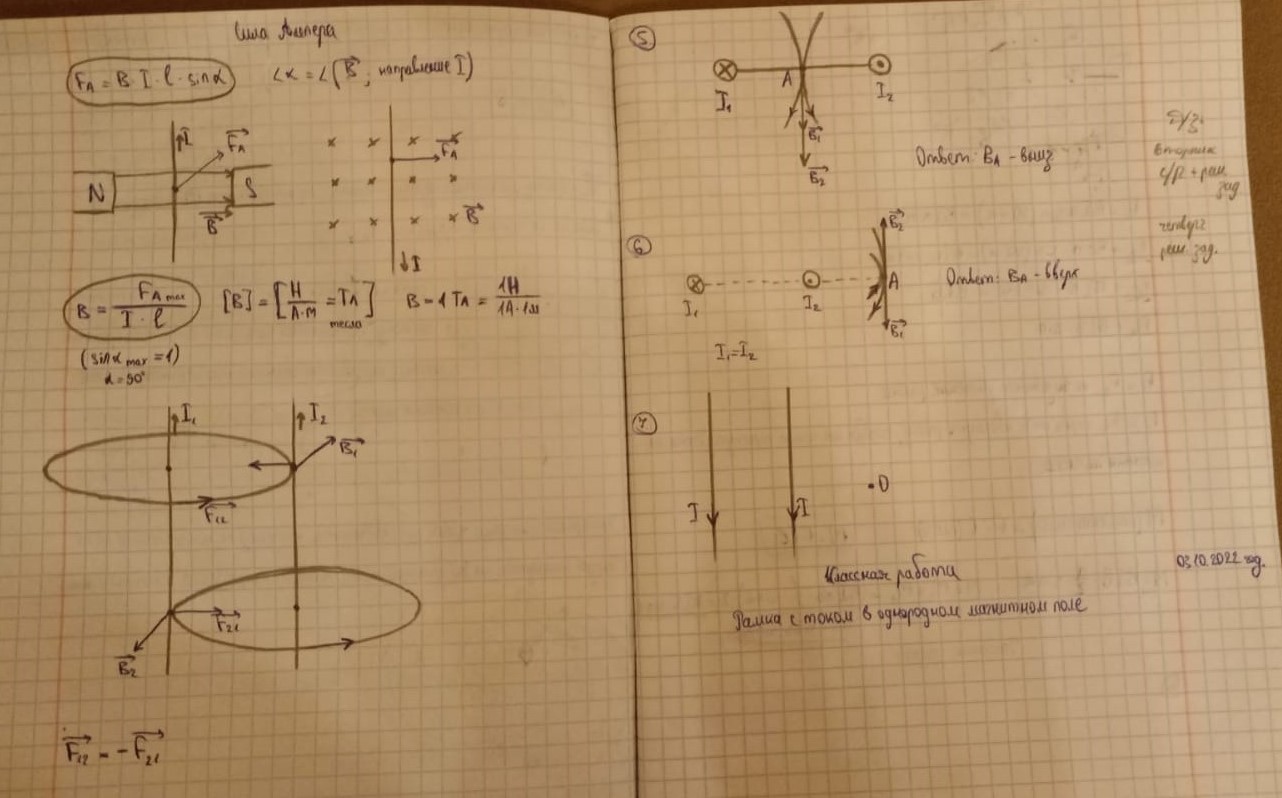 Сила Ампера
F_A = B · I · l · sinα
∠α = ∠(B⃗; направление I)
I⃗
F_A⃗
N
S
B⃗
F_A⃗
B⃗
I
B = F_A max / I · l
[B] = [Н / А·м = Тл]
тесла
B = 1 Тл = 1Н / 1А·1м
(sinα max = 1)
α = 90°
I₁
I₂
B₁⃗
F₁₂⃗
F₂₁⃗
B₂⃗
F₁₂⃗ = -F₂₁⃗
5
A
I₁
I₂
B₁⃗
B₂⃗
Ответ: B_A - вниз
Д/з.
вторник
с/р + реш.
зад.
четверг
реш. зад.
6
B₂⃗
A
I₁
I₂
B₁⃗
Ответ: B_A - вверх
I₁=I₂
7
I
I
O
Классная работа
03.10.2022 год.
Рамка с током в однородном магнитном поле